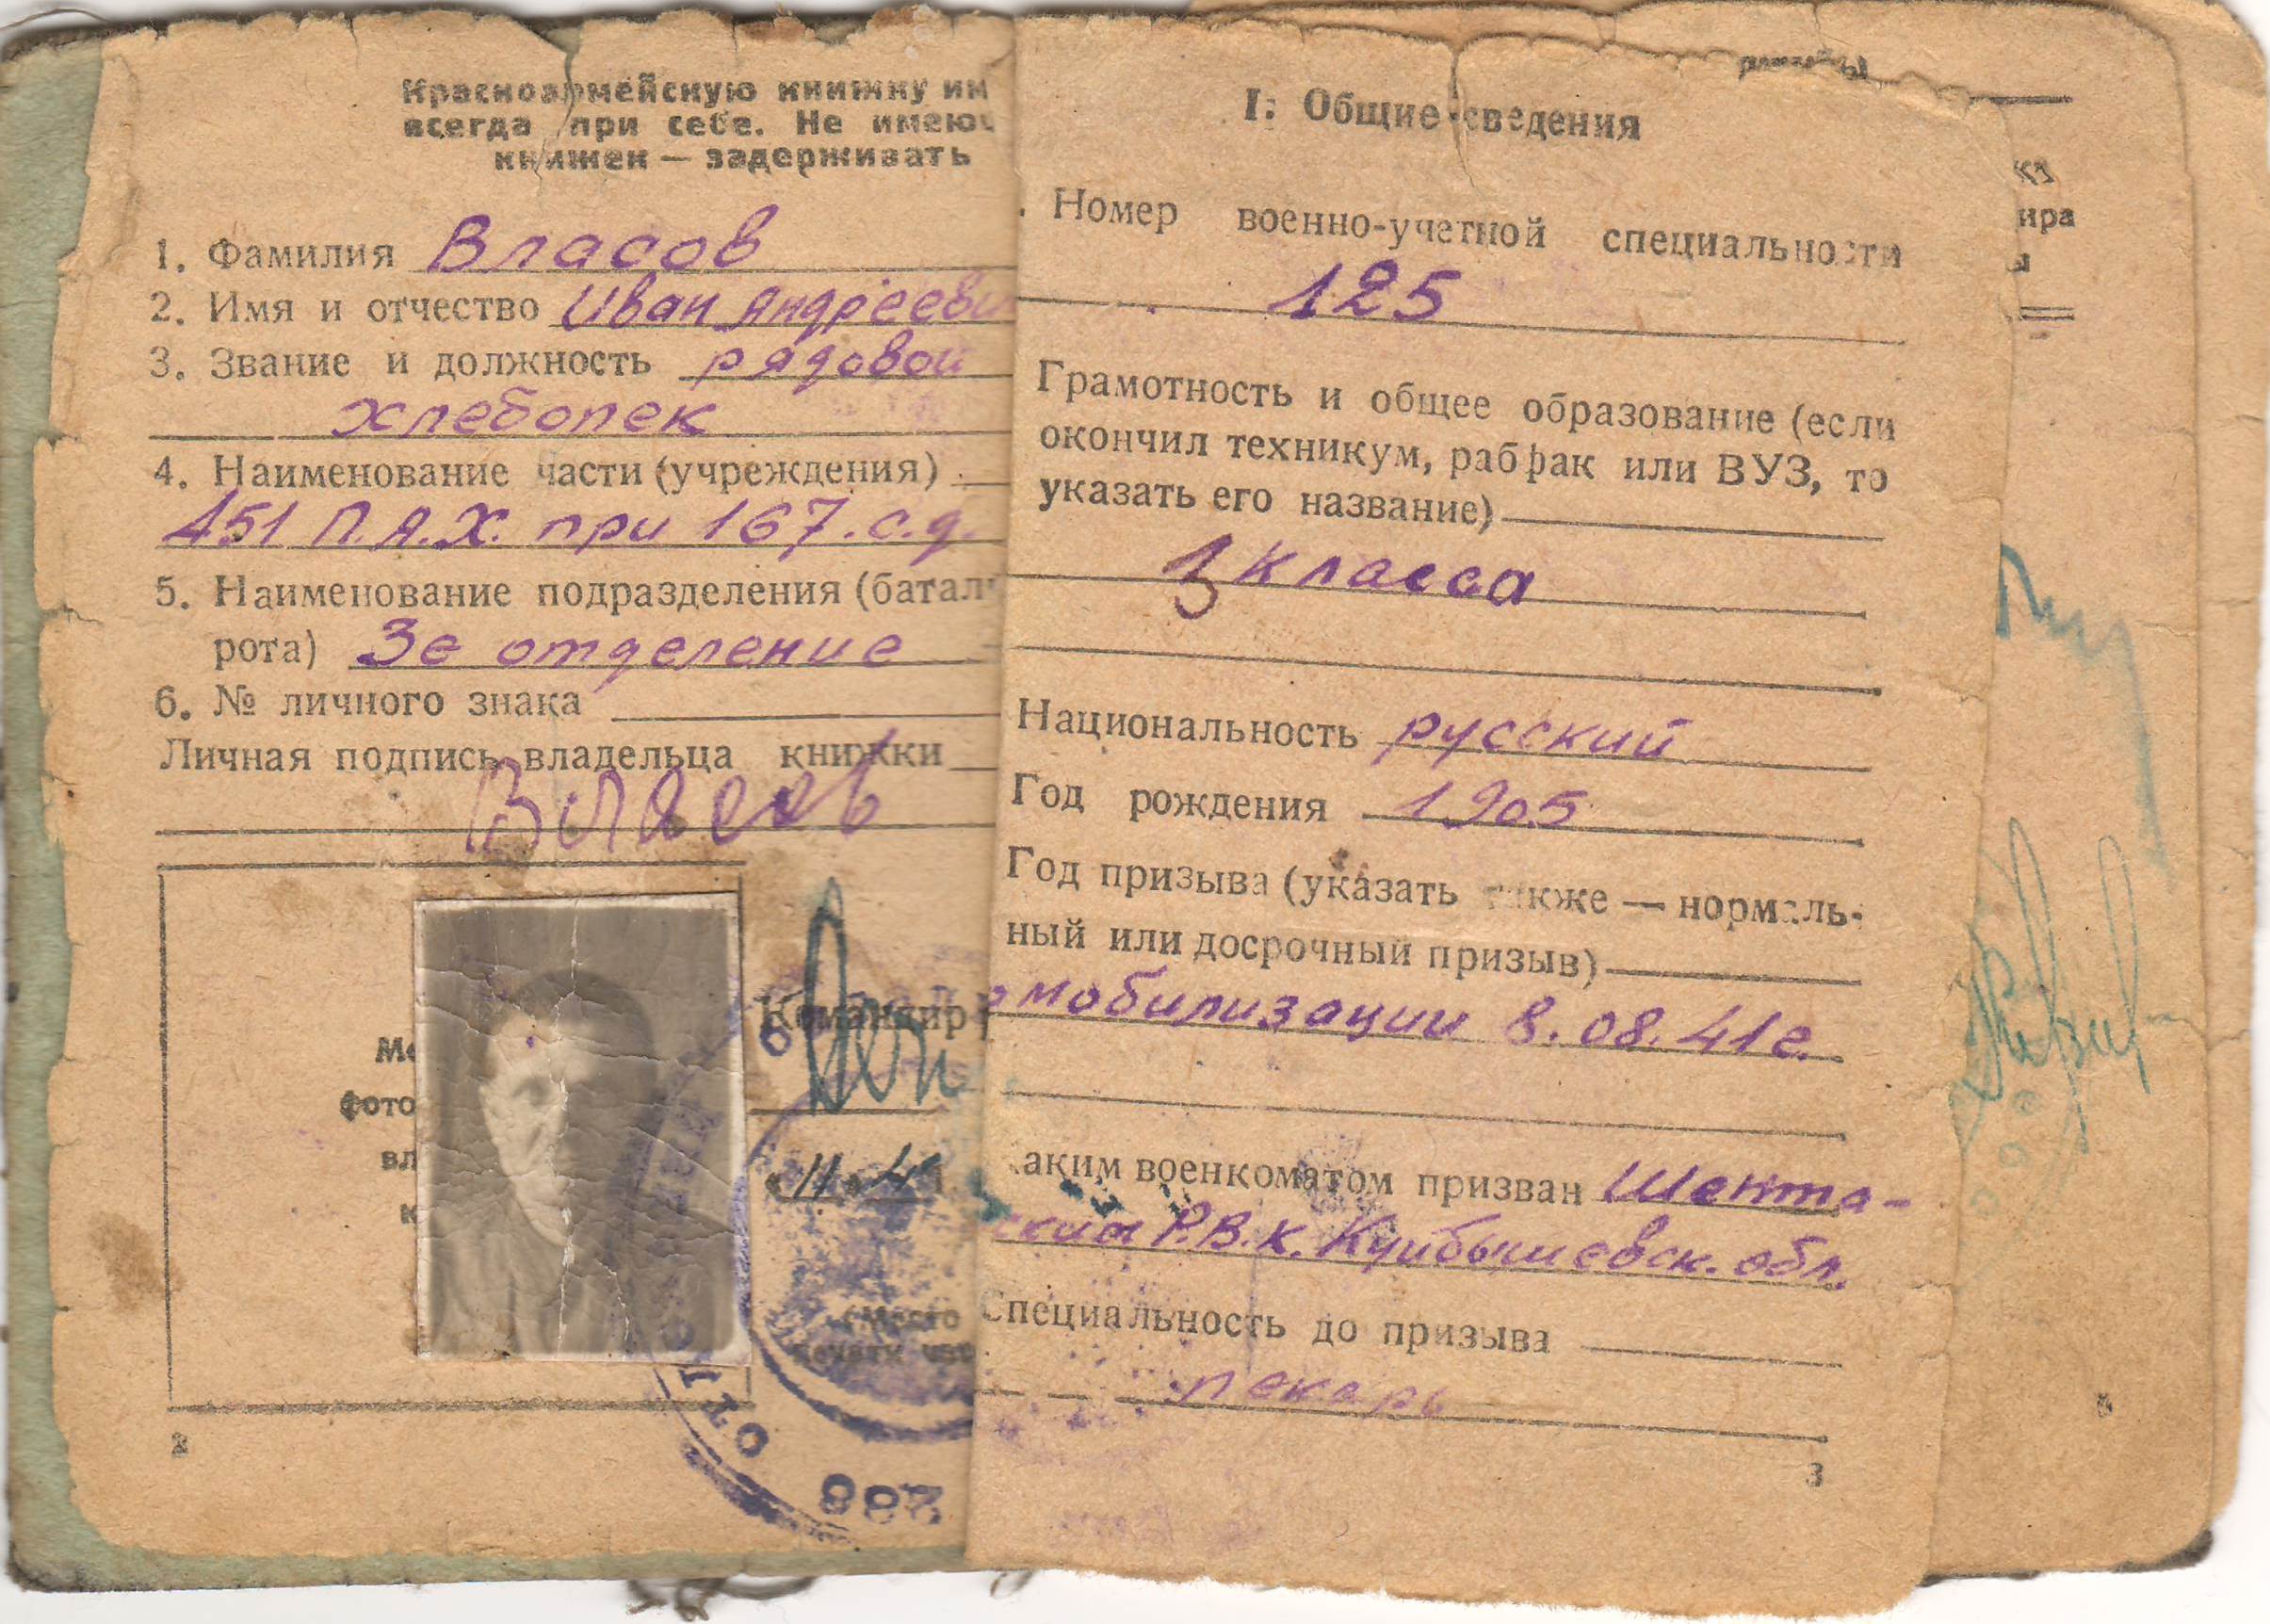 Красноармейскую книжку им
всегда при себе. Не имеющ
книжек — задерживать
1. Фамилия Власов
2. Имя и отчество Иван Андрееви
3. Звание и должность рядовой
хлебопек
4. Наименование части (учреждения)
451 П.А.Х. при 167.с.д.
5. Наименование подразделения (батал
рота) 3е отделение
6. № личного знака
Личная подпись владельца книжки
Власов
Ме
фото
вл
к
Командир
(Место
печати час
288
2
I. Общие сведения
. Номер военно-учетной специальности
125
Грамотность и общее образование (если
окончил техникум, рабфак или ВУЗ, то
указать его название)
3 класса
Национальность русский
Год рождения 1905
Год призыва (указать также — нормаль-
ный или досрочный призыв)
о мобилизации 8.08.41г.
аким военкоматом призван Шента-
ским Р.В.К. Куйбышевск. обл.
Специальность до призыва
пекарь
3
ира
5